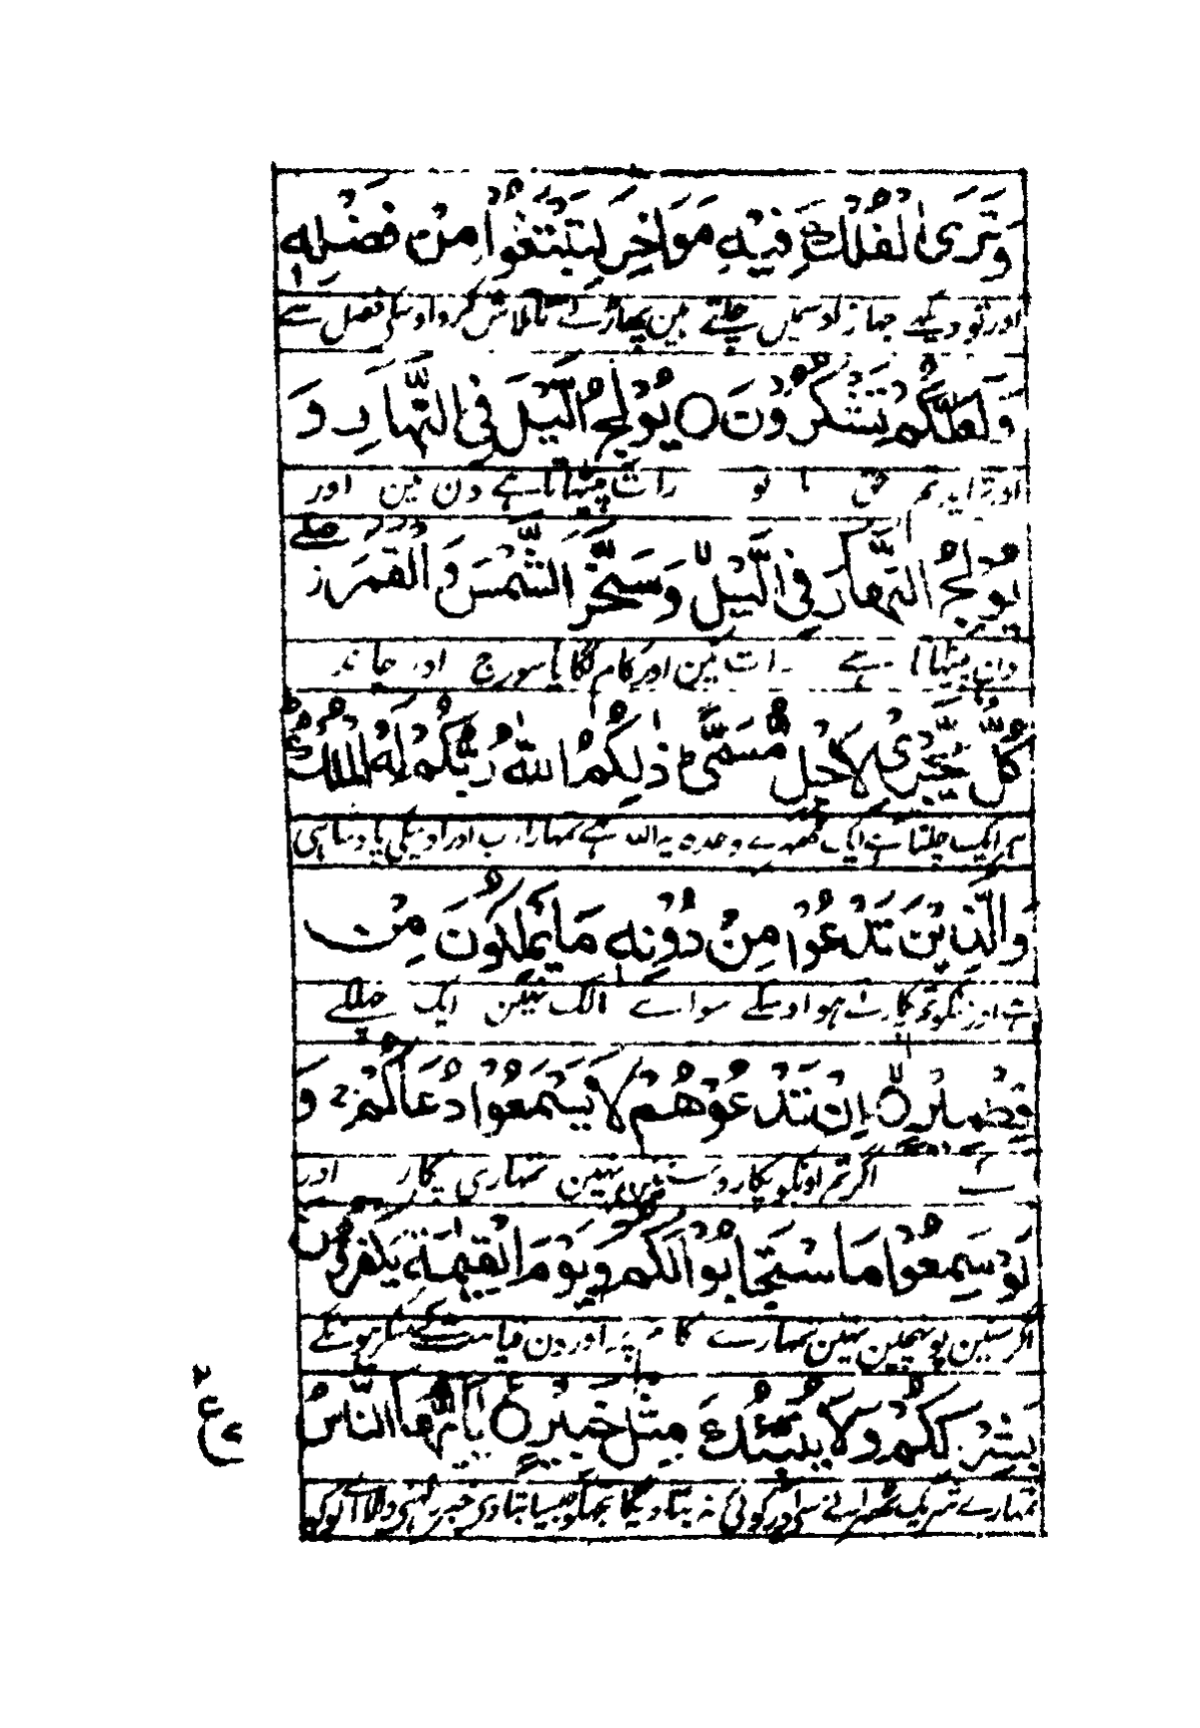 وَتَرَى الْفُلْكَ فِيْهِ مَوَاخِرَ لِتَبْتَغُوْا مِنْ فَضْلِهٖ
اور تو دیکھے جہاز اوسمیں چلتے ہین پھاڑتے تا تلاش کرو اوسکی فضل سے
وَلَعَلَّكُمْ تَشْكُرُوْنَ ○ يُوْلِجُ الَّيْلَ فِي النَّهَارِ وَ
رات پیٹھاتا ہے دن مین اور
يُوْلِجُ النَّهَارَ فِي الَّيْلِ ۙ وَسَخَّرَ الشَّمْسَ وَالْقَمَرَ ز
دن پیٹھاتا ہے رات مین اور کام لگایا سورج اور چاند
كُلٌّ يَّجْرِيْ لِاَجَلٍ مُّسَمًّى ط ذٰلِكُمُ اللّٰهُ رَبُّكُمْ لَهُ الْمُلْكُ ط
ہر ایک چلتا ہے ایک ٹھہرے وعدہ یہ اللہ ہے تمہارا رب اور اوسیکی پادشاہی
وَالَّذِيْنَ تَدْعُوْنَ مِنْ دُوْنِهٖ مَا يَمْلِكُوْنَ مِنْ
ہے اور جنکو تم پکارتے ہو اوسکے سواے مالک نہین ایک چھلکے
قِطْمِيْرٍ ○ اِنْ تَدْعُوْهُمْ لَا يَسْمَعُوْا دُعَآءَكُمْ ج وَ
کے اگر تم اونکو پکارو سنین نہین تمہاری پکار اور
لَوْ سَمِعُوْا مَا اسْتَجَابُوْا لَكُمْ وَيَوْمَ الْقِيٰمَةِ يَكْفُرُوْنَ
اگر سنین پہنچین نہین تمہارے کام پر اور دن قیامت کے منکر ہونگے
بِشِرْكِكُمْ وَلَا يُنَبِّئُكَ مِثْلُ خَبِيْرٍ ○ يٰٓاَيُّهَا النَّاسُ
تمہارے شریک ٹھہرانے سے اور کوئی نہ بتاویگا تجھکو جیسا بتاوے خبر رکھنے والا اے لوگو